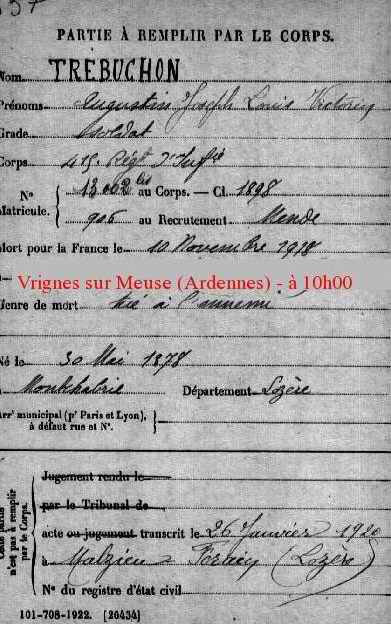 PARTIE À REMPLIR PAR LE CORPS.
Nom TRÉBUCHON
Prénoms Augustin Joseph Louis Victorin
Grade Soldat
Corps 415 Régt d'Inftie
N° Matricule. { 13002 bis au Corps. — Cl. 1898
906 au Recrutement Mende
Mort pour la France le 10 Novembre 1918
à
Vrignes sur Meuse (Ardennes) - à 10h00
Genre de mort tué à l'ennemi
Né le 30 Mai 1878
à Montchabrie Département Lozère
Arr' municipal (p' Paris et Lyon), à défaut rue et N°.
Cette partie n'est pas à remplir par le Corps.
Jugement rendu le
par le Tribunal de
acte ou jugement transcrit le 26 Janvier 1920
à Malzieu-Forain (Lozère)
N° du registre d'état civil
101-708-1922. [26434]